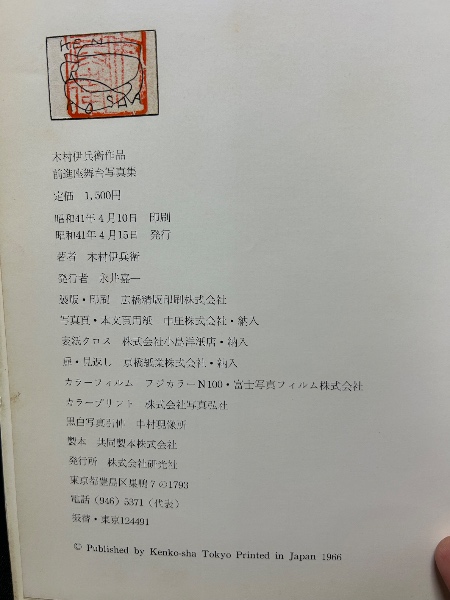 KEN
KO SHA
木村伊兵衛作品
前進座舞台写真集
定価 1,500円
昭和41年4月10日 印刷
昭和41年4月15日 発行
著者 木村伊兵衛
発行者 永井嘉一
製版・印刷 広橋精版印刷株式会社
写真頁・本文頁用紙 中庄株式会社・納入
表紙クロス 株式会社小島洋紙店・納入
扉・見返し 京橋紙業株式会社・納入
カラーフィルム フジカラーN100・富士写真フィルム株式会社
カラープリント 株式会社写真弘社
黒白写真引伸 中村現像所
製本 共同製本株式会社
発行所 株式会社研光社
東京都豊島区巣鴨7の1793
電話(946)5371(代表)
振替・東京124491
© Published by Kenko-sha Tokyo Printed in Japan 1966